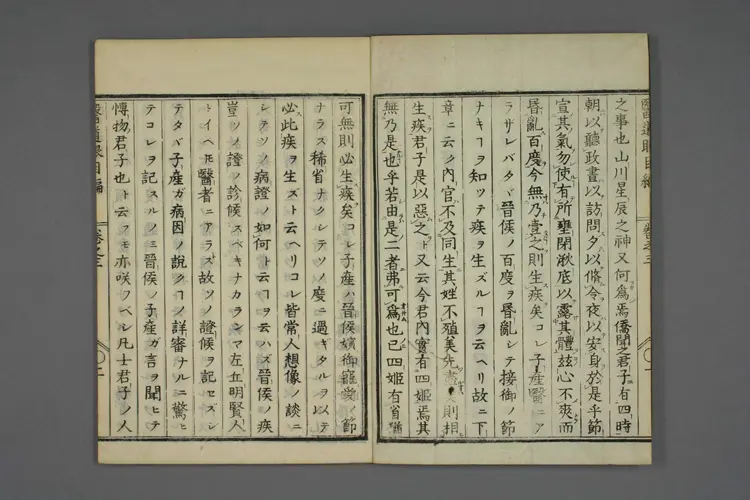 之事也山川星辰之神又何為焉僑聞之君子有四時
朝以聽政晝以訪問夕以脩令夜以安身於是乎節
宣其氣勿使有所壅閉湫底以露其體茲心不爽而
昏亂百度今無乃壹之則生疾矣コレ子産醫ニア
ラザレバタヾ晉侯ノ百度ヲ昏亂シテ接御ノ節
ナキヿヲ知ツテ疾ヲ生ズルヿヲ云ヘリ故ニ下
章ニ云ク内官不及同生其姓不殖美先盡矣則相
生疾君子是以惡之ト又云今君内實有四姬焉其
無乃是也乎若由是二者弗可為也已四姬有省猶
可無則必生疾矣コレ子産ハ晉侯嬪御寵愛ノ節
ナラス稀省ナクシテソノ度ニ過ギタルヲ以テ
必此疾ヲ生ズト云ヘリコレ皆常人想像ノ談ニ
シテソノ病證ノ如何ト云ヿヲ云ハズ晉侯ノ疾
豈ソノ證ノ診候スベキナカランヤ左丘明賢人
トイヘ𪜈醫者ニアラズ故ソノ證候ヲ記セズシ
テタヾ子産ガ病因ノ說クヿノ詳審ナルニ驚ヒ
テコレヲ記スルノミ晉侯ノ子産ガ言ヲ聞ヒテ
博物君子也ト云フモ亦咲フベシ凡士君子ノ人
醫道眼目編
卷之三
醫道眼目編
卷之三